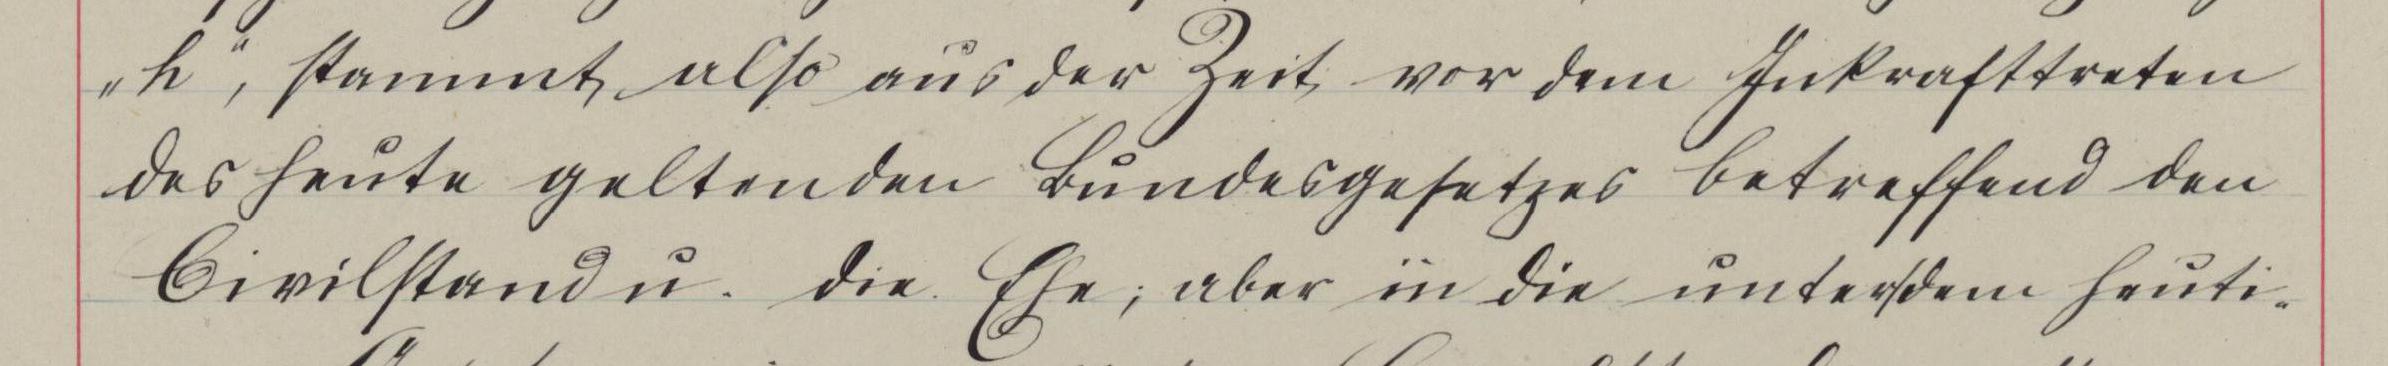 „h", stammt also aus der Zeit vor dem Inkrafttreten
des heute geltenden Bundesgesetzes betreffend den
Civilstand u. die Ehe; aber in die unter dem heuti-